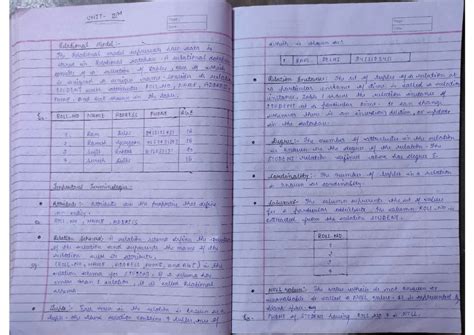 UNIT- III
Relational Model :-
The Relational Model represents how data is
stored in Relational Database. A relational database
consists of a collection of tables, each of which
is assigned a unique name. Consider a relation
STUDENT with attributes ROLL_NO, NAME, ADDRESS,
PHONE, and AGE shown in the table.
Eg:-
ROLL_NO NAME ADDRESS PHONE AGE
1 Ram Delhi 18
2 Ramesh 18
3 Sujit 20
4 Suresh Delhi 18
Important Terminologies
Attribute :- Attributes are the properties that define
an entity.
Eg. ROLL_NO, NAME, ADDRESS
Relation Schema :- A relation schema define the
of the relation and represents the name of the
relation with its attributes.
Eg. STUDENT (ROLL_NO, NAME, ADDRESS, PHONE, and AGE) is the
relation schema for STUDENT. If a schema has
more than 1 relation, it is called Relational
Schema.
Tuple :- Each row in the relation is known as
tuple. The above relation contains 4 tuples, one of
which is shown as:
1 RAM DELHI 18
Relation Instance: The set of tuples of a relation at
a particular instance of time is called a relation
instance. Table 1 shows the relation instance of
STUDENT at a particular time. It can change
whenever there is an insertion, deletion, or update
in the database.
Degree: The number of attributes in the relation
is known as the degree of the relation. The
STUDENT relation defined above has degree 5.
Cardinality: The number of tuples in a relation
is known as cardinality.
Column: The column represents the set of values
for a particular attribute. The column ROLL_NO is
extracted from the relation STUDENT.
ROLL_NO
1
2
3
4
NULL Values: The value which is not known or
unavailable is called a NULL value. It is represented by
blank space.
Eg. PHONE of STUDENT having ROLL_NO 4 is NULL.